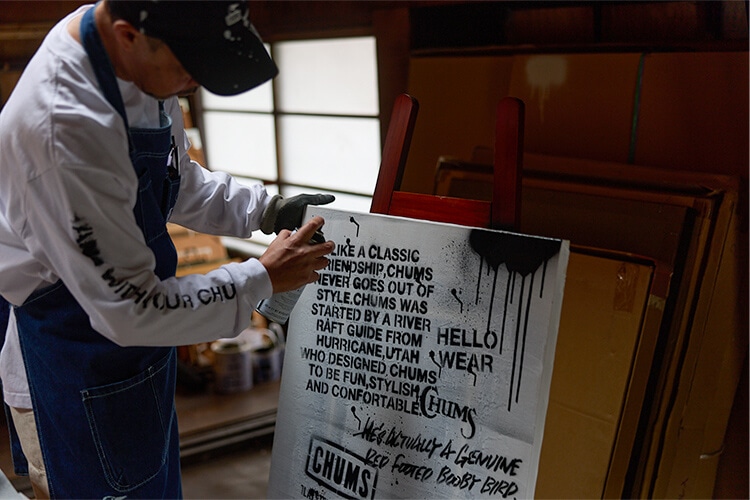 LIKE A CLASSIC
FRIENDSHIP,CHUMS
NEVER GOES OUT OF
STYLE.CHUMS WAS
STARTED BY A RIVER
RAFT GUIDE FROM
HURRICANE,UTAH
WHO DESIGNED CHUMS
TO BE FUN,STYLISH
AND CONFORTABLE.
HELLO
WEAR
CHUMS
HE'S ACTUALLY A GENUINE
RED FOOTED BOOBY BIRD
CHUMS
WITH OUR CHU